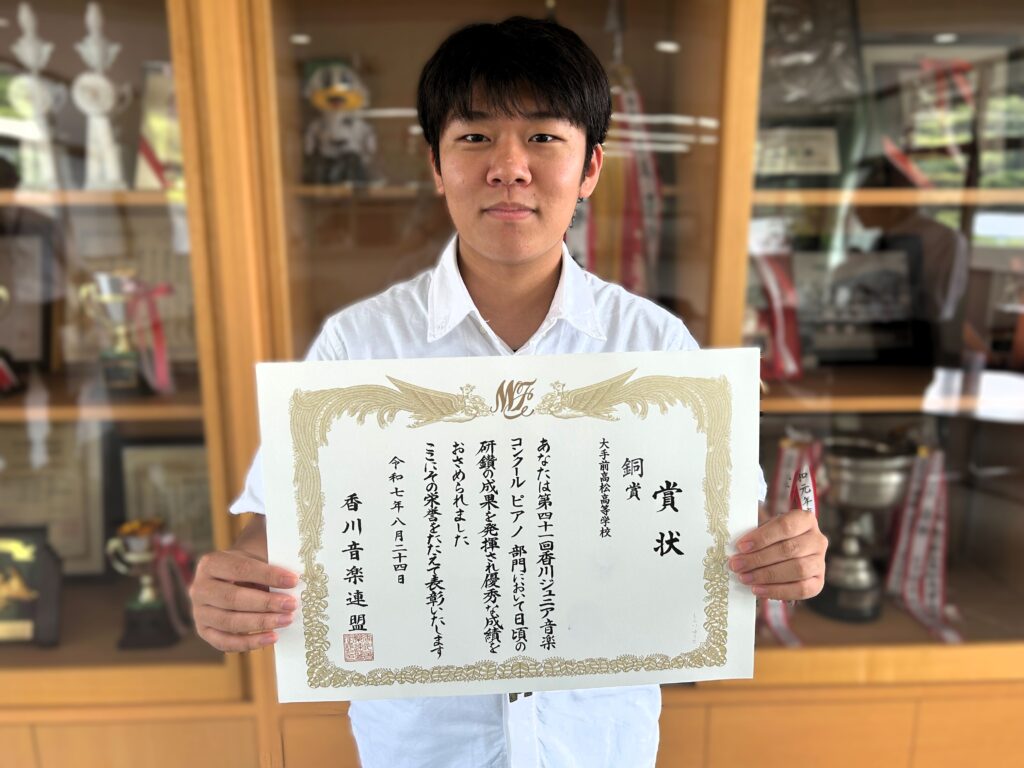 賞状
銅賞
大手前高松高等学校
あなたは第四十一回香川ジュニア音楽
コンクール ピアノ 部門において日頃の
研鑽の成果を発揮され優秀な成績を
おさめられました
ここにその栄誉をたたえて表彰いたします
令和七年八月二十四日
香川音楽連盟